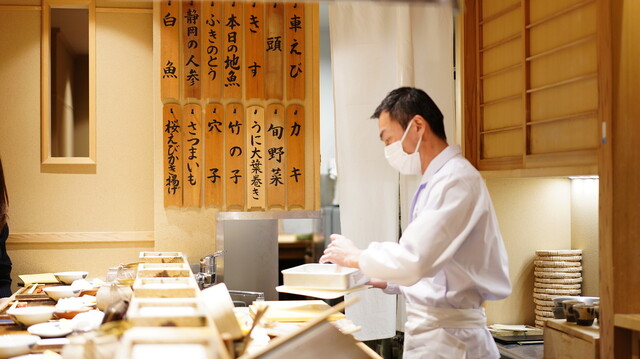 車えび
頭
きす
本日の地魚
ふきのとう
静岡の人参
白魚
カキ
旬野菜
うに大葉巻き
竹の子
穴子
さつまいも
桜えびかき揚げ